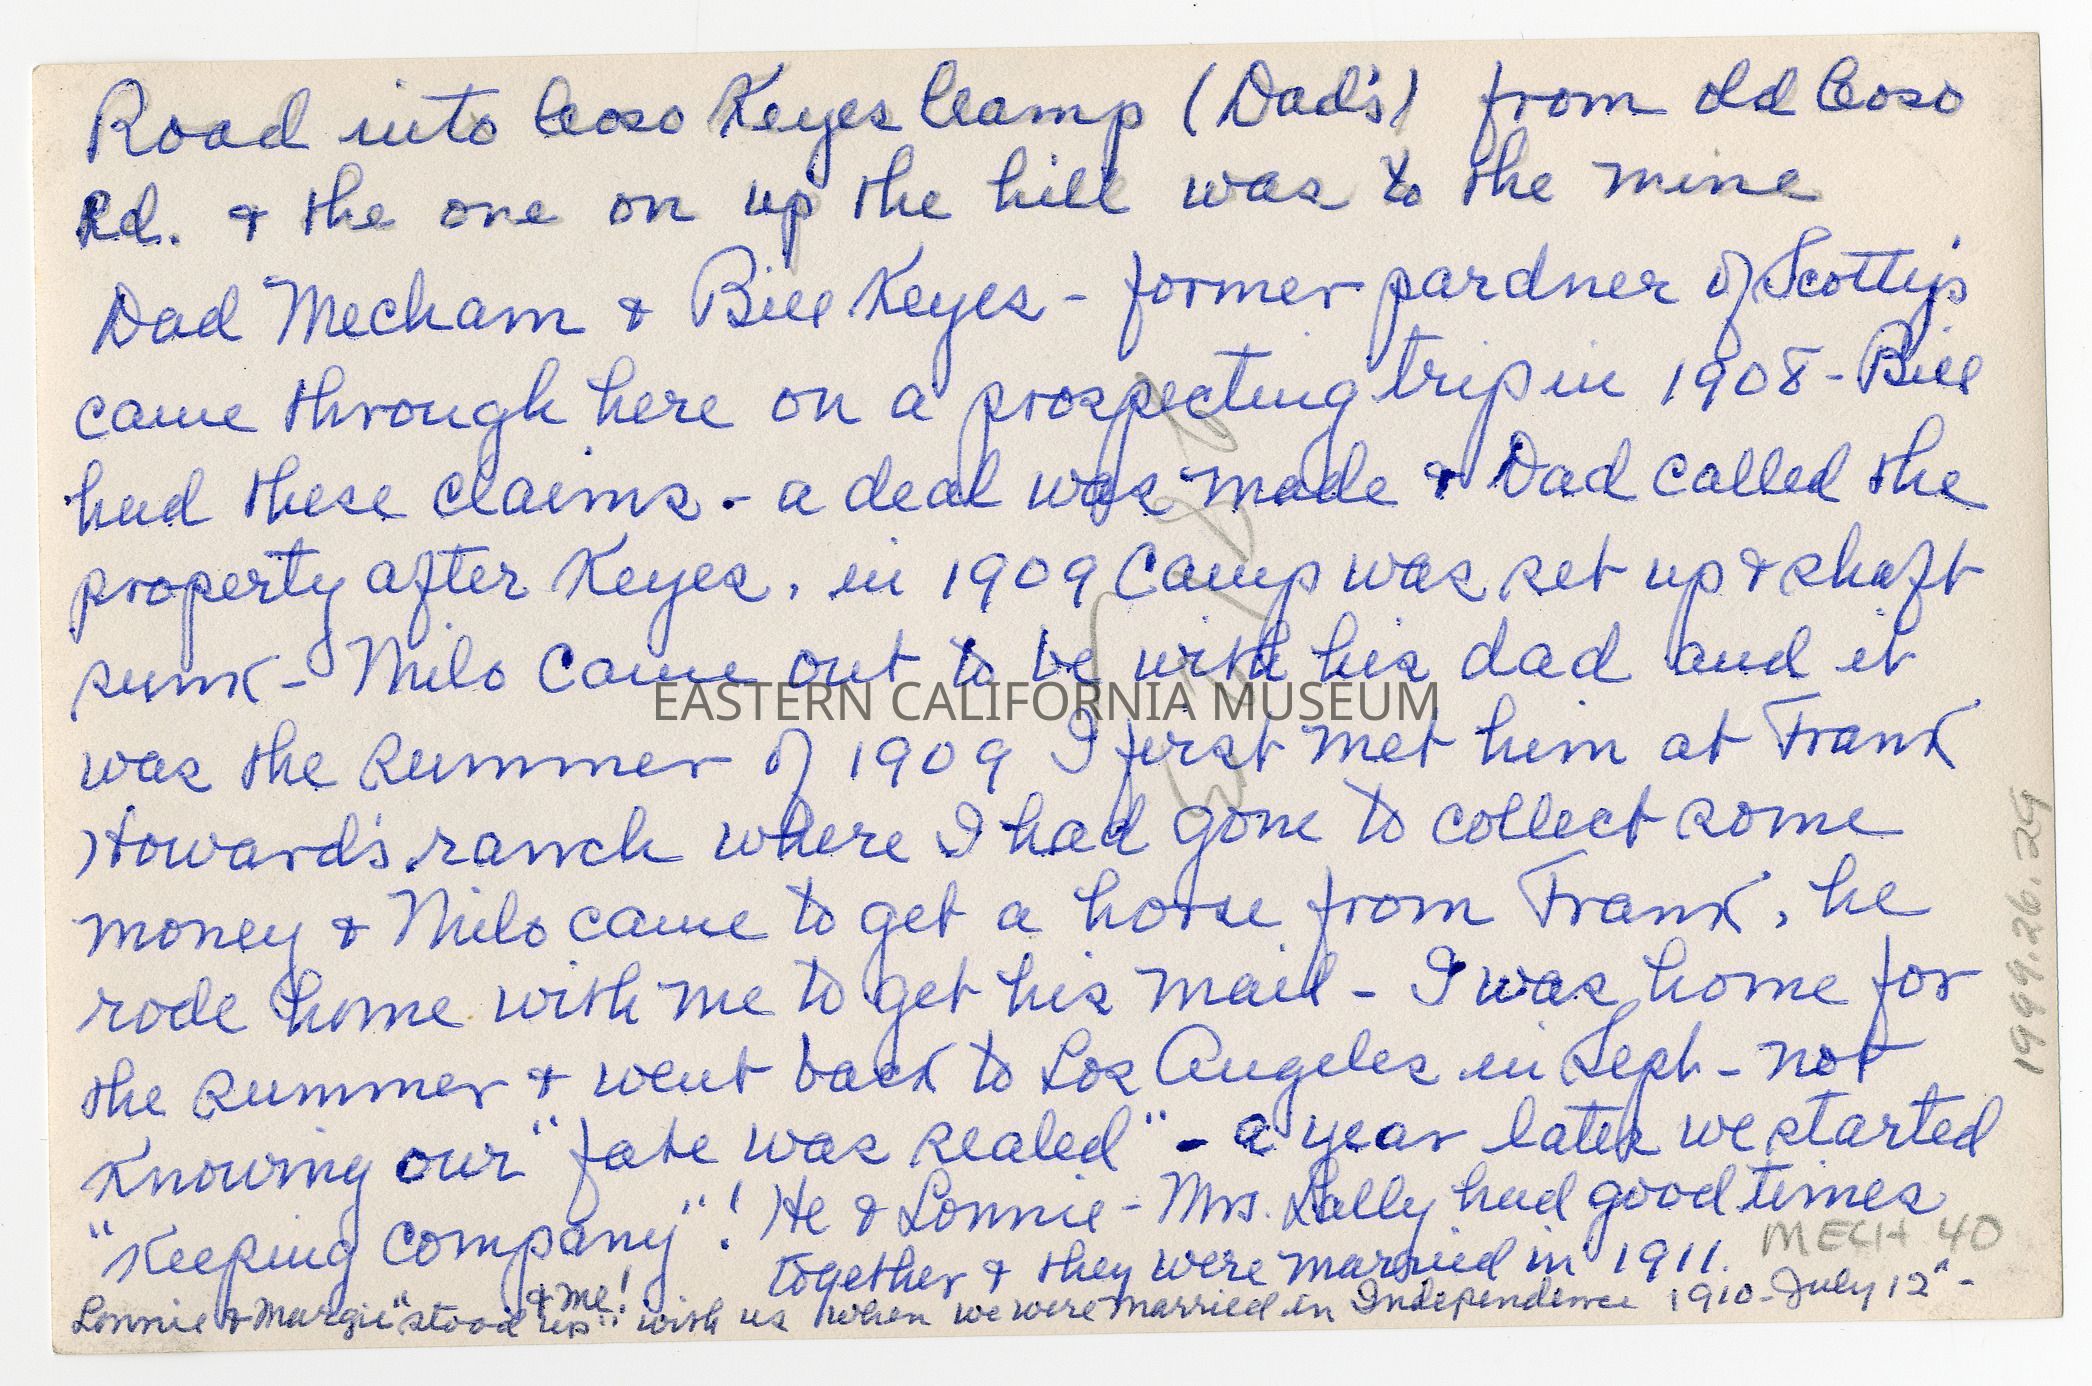 Road into Coso Keyes Camp (Dad's) from old Coso
Rd. & the one on up the hill was to the mine
Dad Mecham & Bill Keyes - former pardner of Scotty's
came through here on a prospecting trip in 1908 - Bill
had these claims - a deal was made & Dad called the
property after Keyes. in 1909 Camp was set up & shaft
sunk - Milo came out to be with his dad and it
EASTERN CALIFORNIA MUSEUM
was the summer of 1909 I first met him at Frank
Howard's ranch where I had gone to collect some
money & Milo came to get a horse from Frank, he
rode home with me to get his mail - I was home for
the summer & went back to Los Angeles in Sept - not
Knowing our "fate was sealed" - a year later we started
"Keeping company"! He & Lonnie - Mrs. Lally had good times
& me!
together & they were married in 1911.
Lonnie & Margie "stood up" with us when we were married in Independence 1910 - July 12" -
MECH 40
1999.26.29